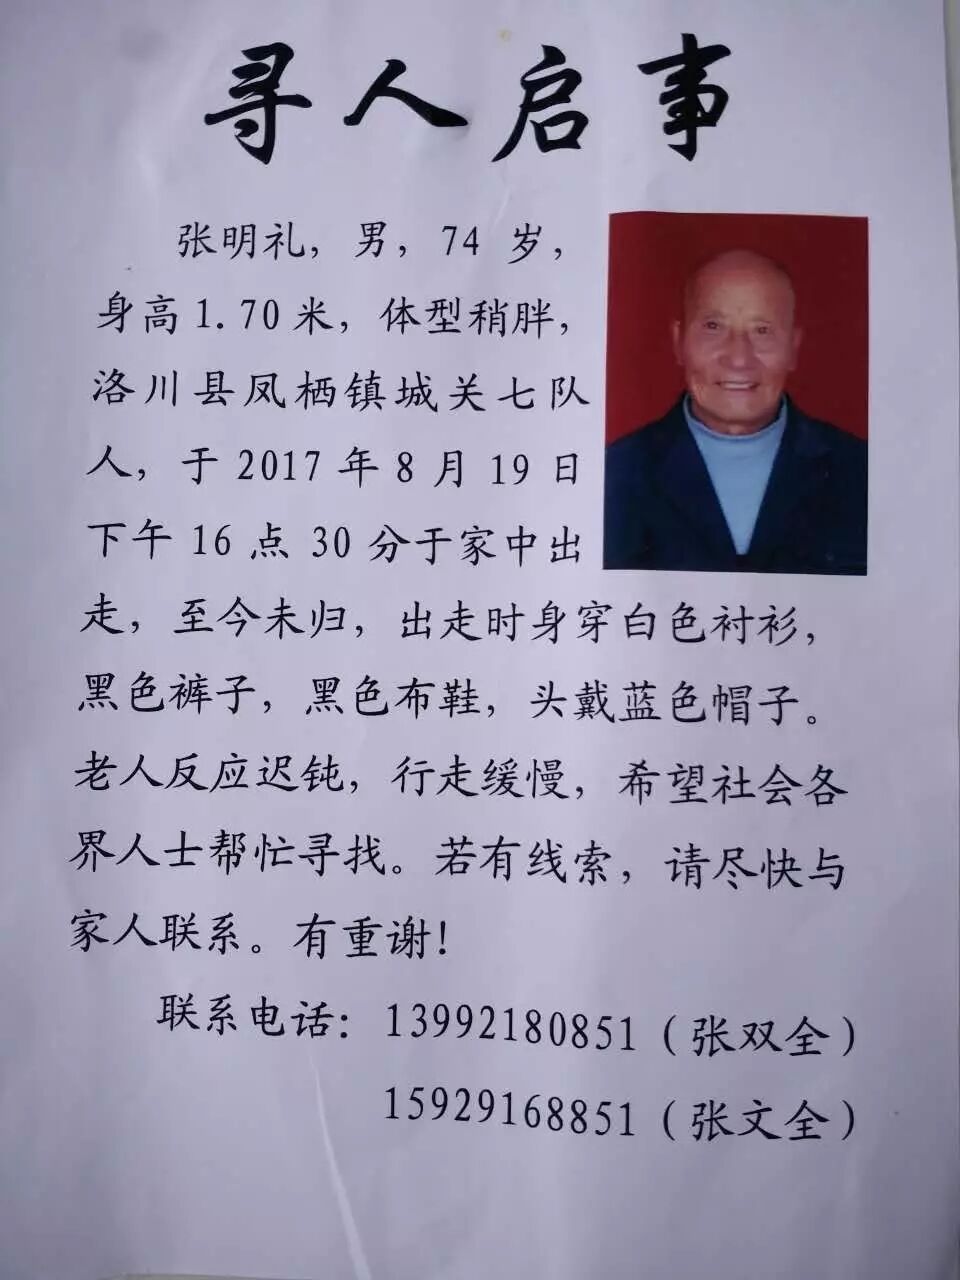 寻人启事
张明礼，男，74 岁，
身高1.70米，体型稍胖，
洛川县凤栖镇城关七队
人，于 2017 年 8 月 19 日
下午 16 点 30 分于家中出
走，至今未归，出走时身穿白色衬衫，
黑色裤子，黑色布鞋，头戴蓝色帽子。
老人反应迟钝，行走缓慢，希望社会各
界人士帮忙寻找。若有线索，请尽快与
家人联系。有重谢！
联系电话：13992180851（张双全）
15929168851（张文全）